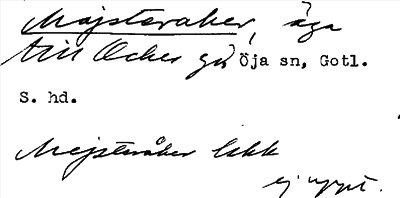 Mejsteraker, äga
till Ocker gd Öja sn, Gotl.
S. hd.
Mejsteråker Ekk
ej uppt.